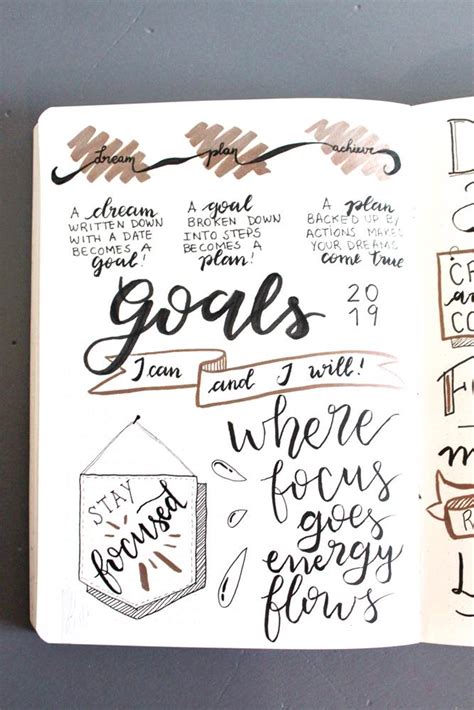 dream plan achieve
A dream
WRITTEN DOWN
WITH A DATE
BECOMES A
goal!
A goal
BROKEN DOWN
INTO STEPS
BECOMES A
plan!
A plan
BACKED UP BY
ACTIONS MAKES
YOUR DREAMS
come true
goals
20
19
I can and I will!
STAY
focused
where
focus
goes
energy
flows